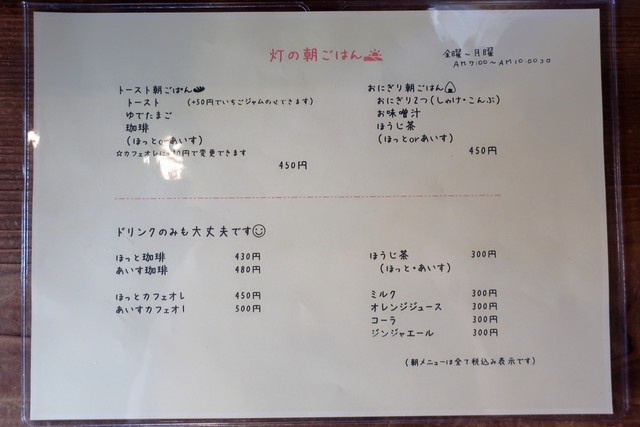 灯の朝ごはん
金曜~月曜
AM7:00~AM10:00 LO
トースト朝ごはん
トースト (+50円でいちごジャムのせできます)
ゆでたまご
珈琲
(ほっとorあいす)
☆カフェオレに 円で変更できます
450円
おにぎり朝ごはん
おにぎり2つ(しゃけ・こんぶ)
お味噌汁
ほうじ茶
(ほっとorあいす)
450円
ドリンクのみも大丈夫です
ほっと珈琲 430円
あいす珈琲 480円
ほっとカフェオレ 450円
あいすカフェオレ 500円
ほうじ茶 300円
(ほっと・あいす)
ミルク 300円
オレンジジュース 300円
コーラ 300円
ジンジャエール 300円
(朝メニューは全て税込み表示です)